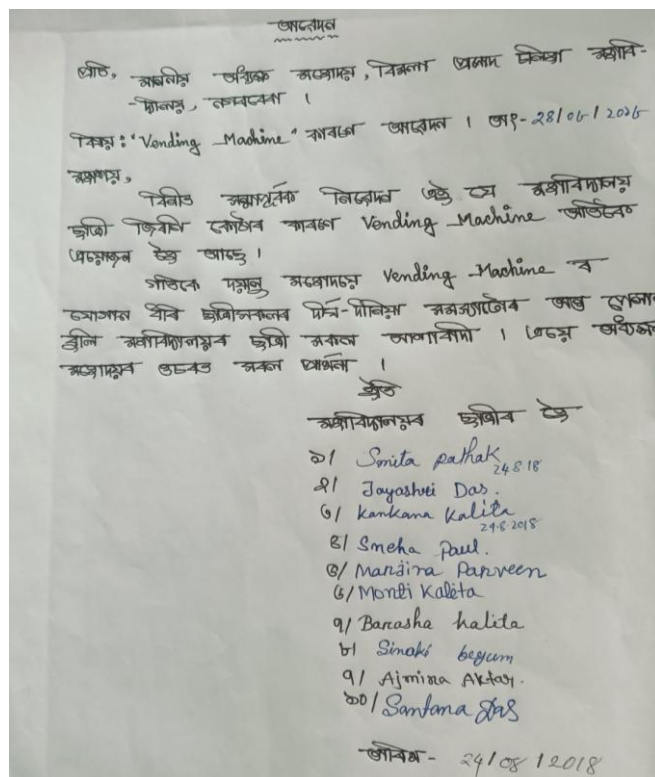 আবেদন
প্ৰতি, মাননীয় অধ্যক্ষ মহোদয়, বিমলা প্ৰসাদ চলিহা মহাবি-
-দ্যালয়, নগৰবেৰা ।
বিষয় : "Vending Machine" কাৰণে আবেদন ।
মহাশয়,
বিনীত নিবেদন এই যে মহাবিদ্যালয়
ছাত্ৰী জিৰণি কোঠাৰ কাৰণে Vending Machine অতিকৈ
প্ৰয়োজন হৈ আছে ।
গতিকে দয়ালু মহোদয়ে Vending Machine ৰ
যোগান ধৰি ছাত্ৰীসকলৰ দীৰ্ঘ-দিনীয়া সমস্যাটোৰ অন্ত পেলাব
বুলি মহাবিদ্যালয়ৰ ছাত্ৰী সকল আশাবাদী ।
মহোদয়ৰ ওচৰত সকল প্ৰাৰ্থনা ।
ইতি
মহাবিদ্যালয়ৰ ছাত্ৰীৰ হৈ
১/ Smita pathak
24.8.18
২/ Jayashri Das.
৩/ Kankana Kalita
24.8.2018
৪/ Sneha Paul.
৫/ Manjira Parveen
৬/ Monti Kalita
৭/ Barasha kalita
৮/ Sinaki begum
৯/ Ajmina Aktar.
১০/ Santana Das
তাৰিখ - 24/08/2018